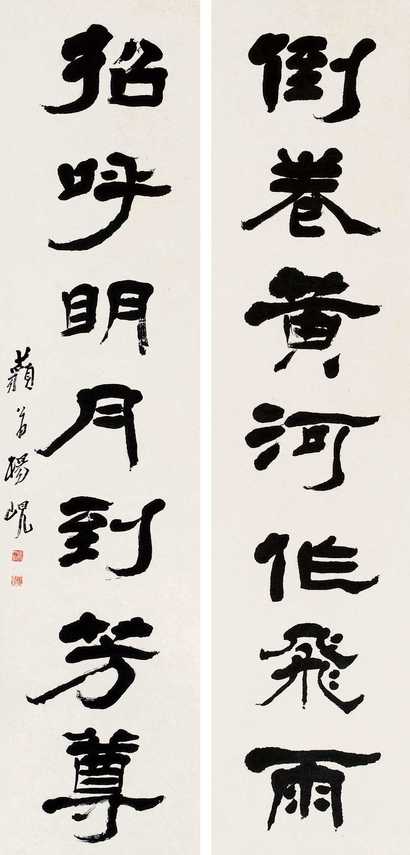 倒卷黄河作飛雨
招呼明月到芳尊
藐翁楊峴